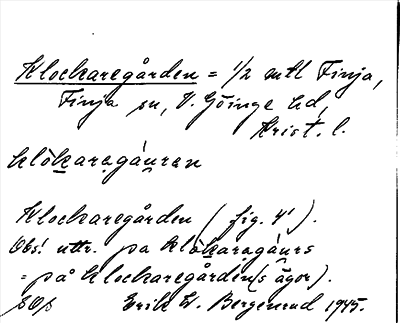 Klockaregården = 1/2 mtl Finja,
Finja sn, V. Göinge hd,
Krist. l.
klòkaragáu̯ran
Klockaregården (fig. 4').
Obs! uttr. pa klòkaragáu̯rs
= på klockaregården(s ägor).
Erik W. Bergenrud 1945.